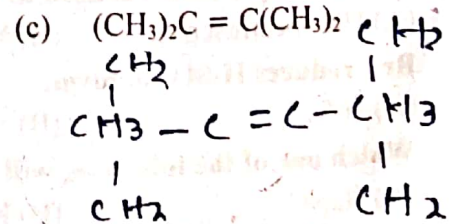 (c) (CH₃)₂C = C(CH₃)₂ CH₂
CH₂ |
|
CH3 – C = C – CH3
| |
CH2 CH2